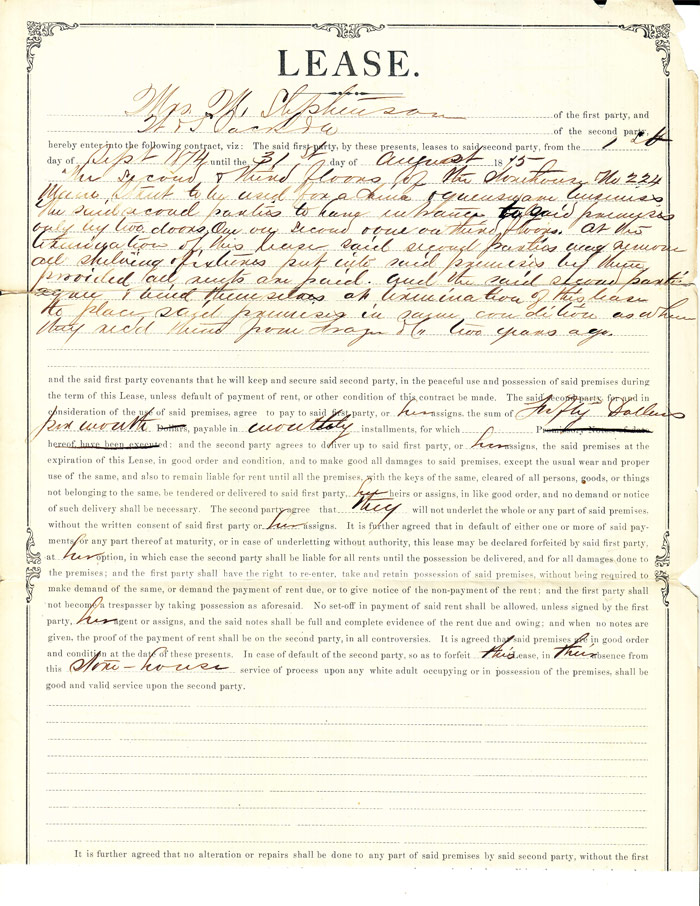 LEASE.
Mrs. M. Stephenson of the first party, and
of the second party,
hereby enter into the following contract, viz: The said first party, by these presents, leases to said second party, from the 1st
day of Sept 1874 until the 31st day of August 1875
The Second & third floors of the Storehouse No 224
Main Street to be used for a China & Queensware business
the said second parties to have entrance to said premises
only by two doors, One on second & one on third floors. At the
termination of this lease said second parties may remove
all shelving & fixtures put into said premises by them
provided all rents are paid. And the said second parties
agree & bind themselves at termination of this lease
to place said premises in same condition as when
they rec'd them from two years ago.
and the said first party covenants that he will keep and secure said second party, in the peaceful use and possession of said premises during
the term of this Lease, unless default of payment of rent, or other condition of this contract be made. The said second party, for and in
consideration of the use of said premises, agree to pay to said first party, or her assigns. the sum of Fifty Dollars
per month Dollars, payable in monthly installments, for which Promissory Notes of date
hereof, have been executed; and the second party agrees to deliver up to said first party, or her assigns, the said premises at the
expiration of this Lease, in good order and condition, and to make good all damages to said premises, except the usual wear and proper
use of the same, and also to remain liable for rent until all the premises, with the keys of the same, cleared of all persons, goods, or things
not belonging to the same, be tendered or delivered to said first party, her heirs or assigns, in like good order, and no demand or notice
of such delivery shall be necessary. The second party agree that they will not underlet the whole or any part of said premises.
without the written consent of said first party or her assigns. It is further agreed that in default of either one or more of said pay-
ments, or any part thereof at maturity, or in case of underletting without authority, this lease may be declared forfeited by said first party,
at her option, in which case the second party shall be liable for all rents until the possession be delivered, and for all damages done to
the premises; and the first party shall have the right to re-enter, take and retain possession of said premises, without being required to
make demand of the same, or demand the payment of rent due, or to give notice of the non-payment of the rent; and the first party shall
not become a trespasser by taking possession as aforesaid. No set-off in payment of said rent shall be allowed, unless signed by the first
party, her agent or assigns, and the said notes shall be full and complete evidence of the rent due and owing; and when no notes are
given, the proof of the payment of rent shall be on the second party, in all controversies. It is agreed that said premises are in good order
and condition at the date of these presents. In case of default of the second party, so as to forfeit this lease, in their absence from
this store-house service of process upon any white adult occupying or in possession of the premises, shall be
good and valid service upon the second party.
It is further agreed that no alteration or repairs shall be done to any part of said premises by said second party, without the first